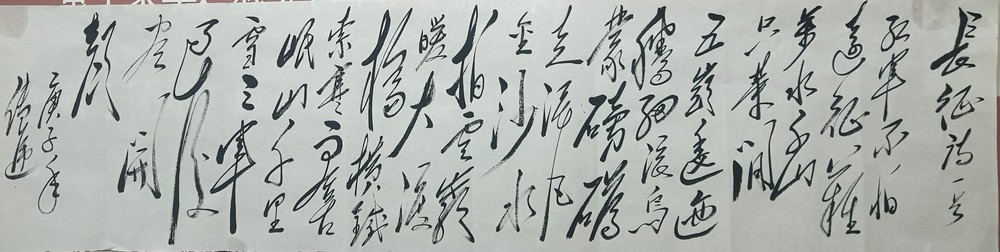 長征诗一首
红軍不怕
遠征難
萬水千山
只等閒
五嶺逶迤
腾细浪烏
蒙磅礴
走泥丸
金沙水
拍雲崖
暖大渡
橋横鐵
索寒更喜
岷山千里
雪三軍
过後
尽開
颜
庚子年